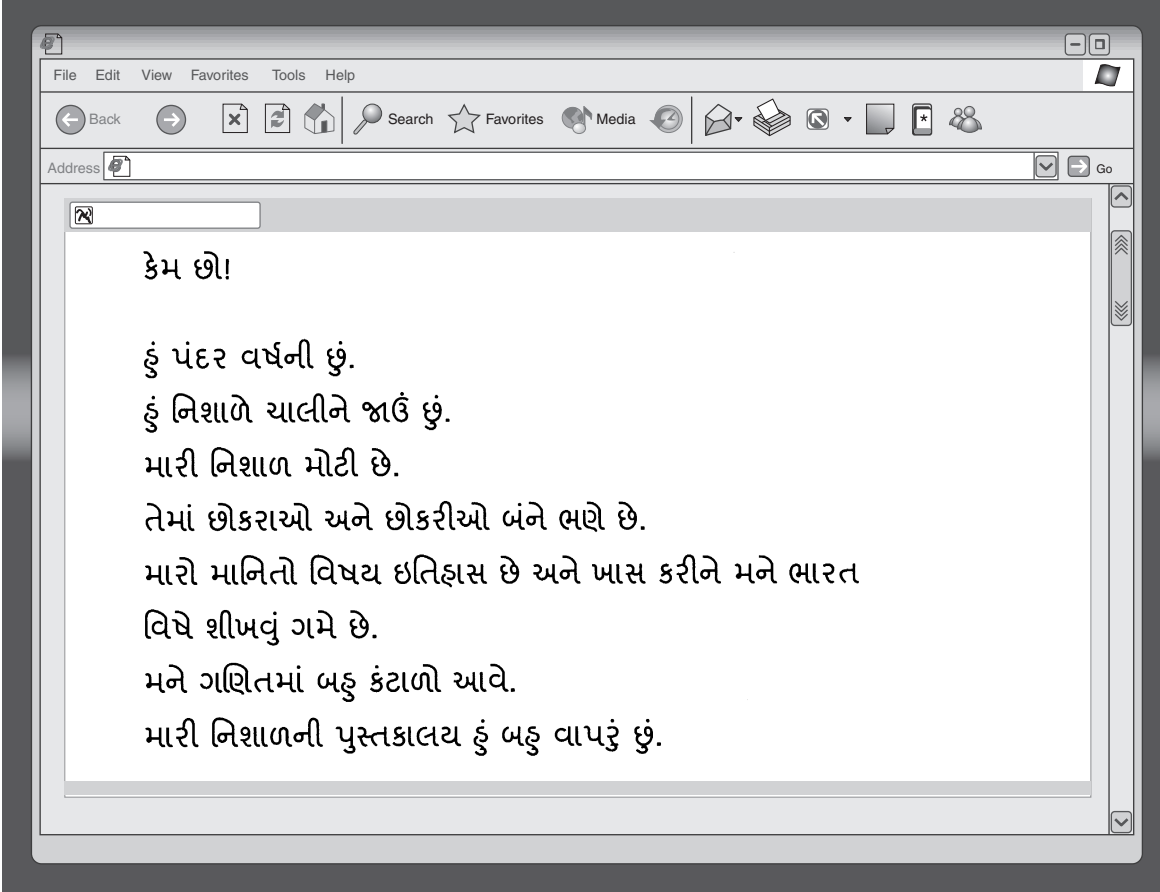 File Edit View Favorites Tools Help
Back Search Favorites Media
Address Go
કેમ છો!
હું પંદર વર્ષની છું.
હું નિશાળે ચાલીને જાઉં છું.
મારી નિશાળ મોટી છે.
તેમાં છોકરાઓ અને છોકરીઓ બંને ભણે છે.
મારો માનિતો વિષય ઇતિહાસ છે અને ખાસ કરીને મને ભારત
વિષે શીખવું ગમે છે.
મને ગણિતમાં બહુ કંટાળો આવે.
મારી નિશાળની પુસ્તકાલય હું બહુ વાપરું છું.